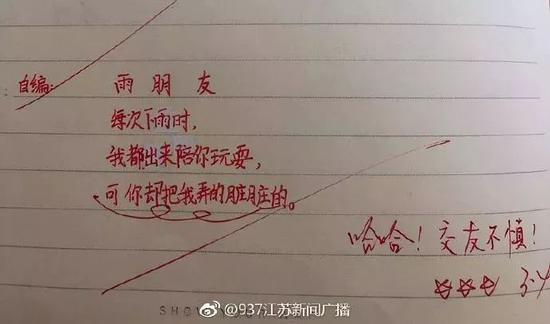 自编: 雨朋友
每次下雨时,
我都出来陪你玩耍,
可你却把我弄的脏脏的。
哈哈!交友不慎!
☆☆☆ 3.4
SHO
@937江苏新闻广播